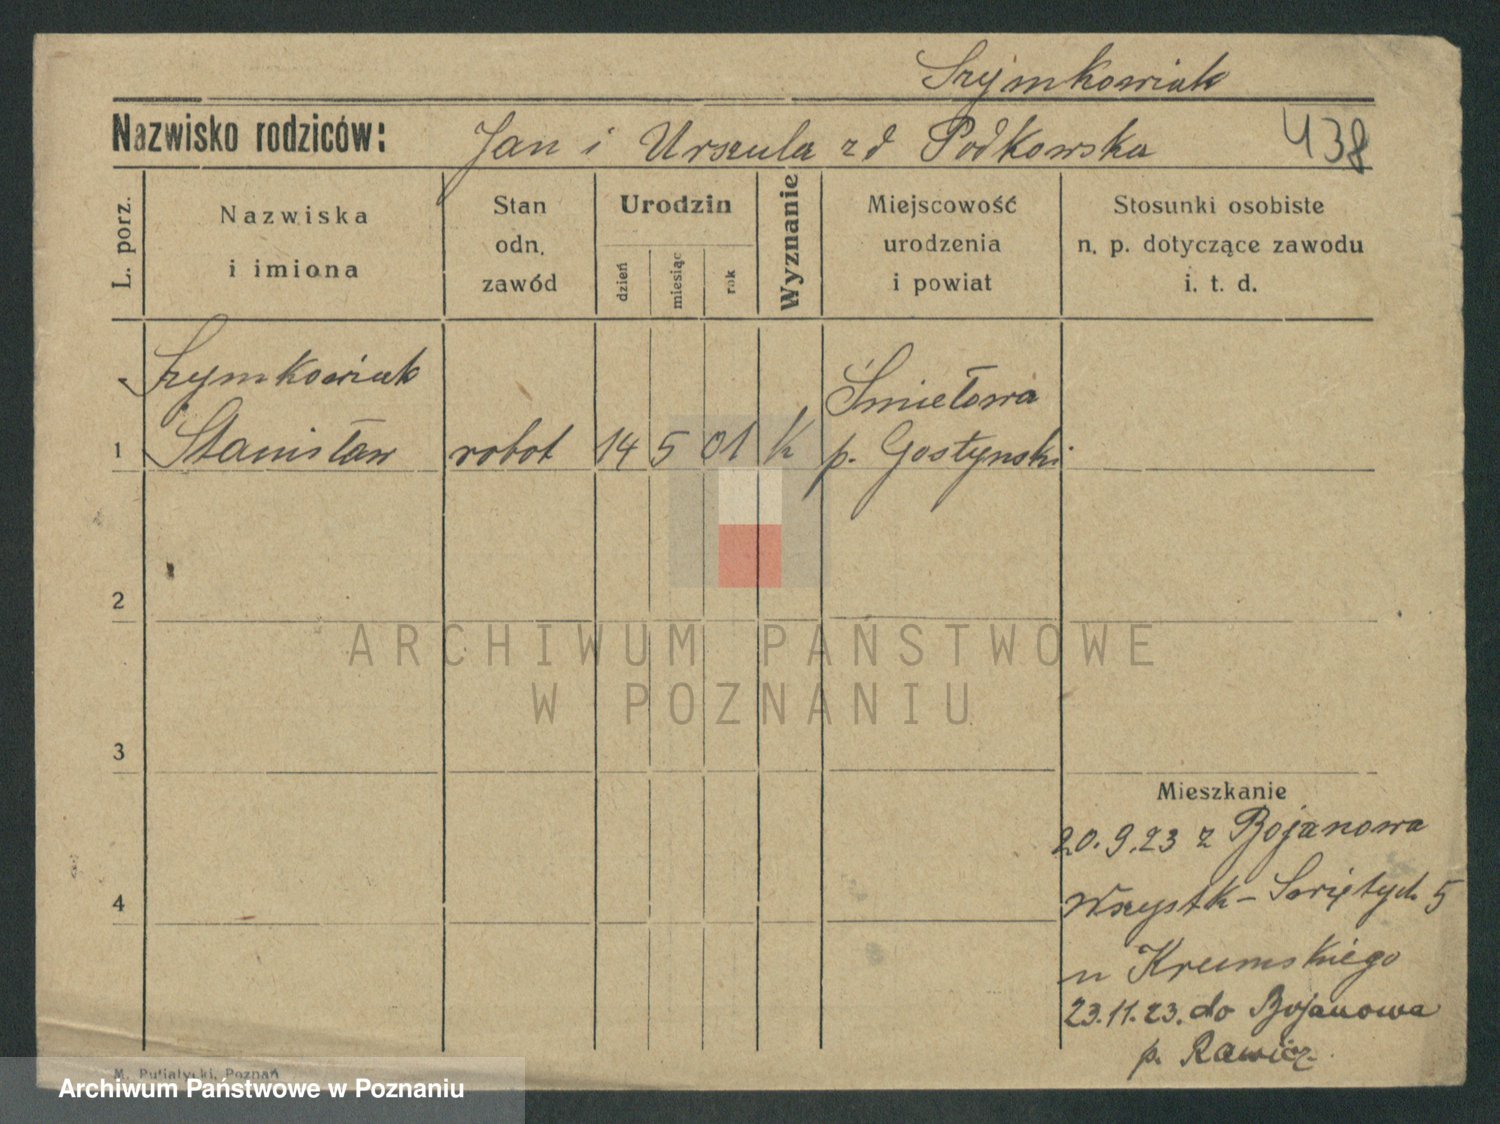 Szymkowiak
Nazwisko rodziców: Jan i Urszula zd Podkowska 438
L. porz.
Nazwiska
i imiona
Stan
odn.
zawód
Urodzin
dzień
miesiąc
rok
Wyznanie
Miejscowość
urodzenia
i powiat
Stosunki osobiste
n. p. dotyczące zawodu
i. t. d.
Szymkowiak
1 Stanisław robot 14 5 01 K
Śmiełowa
p. Gostynski
2
ARCHIWUM PAŃSTWOWE
W POZNANIU
3
4
Mieszkanie
20.9.23 z Bojanowa
Wszystk-Świętych 5
u Krumskiego
23.11.23. do Bojanowa
p. Rawicz
M. Putiatycki, Poznań
Archiwum Państwowe w Poznaniu